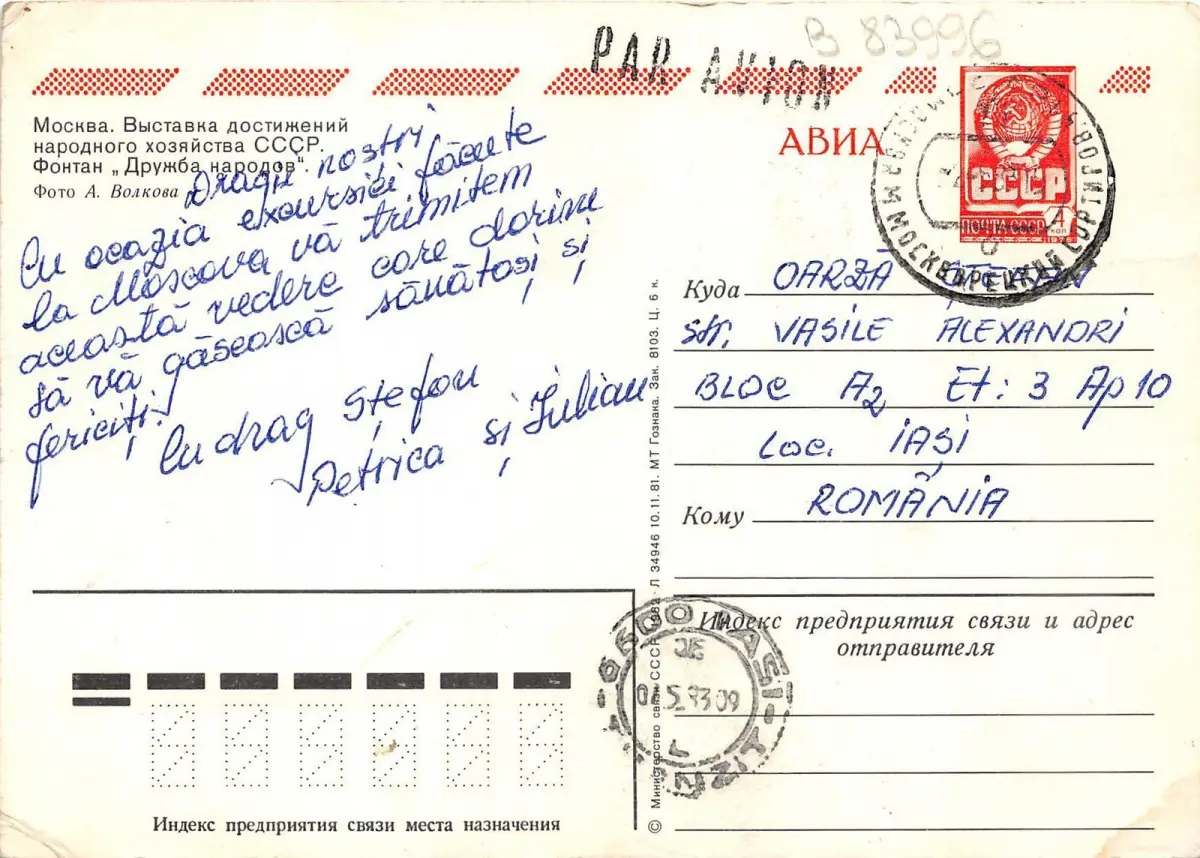 B 83996
PAR AVION
АВИА
СССР
ПОЧТА СССР
Москва. Выставка достижений
народного хозяйства СССР.
Фонтан „Дружба народов".
Фото А. Волкова
Dragii noștri
Cu ocazia excursiei făcute
la Moscova vă trimitem
această vedere care dorim
să vă găsească sănătoși și
fericiți.
Cu drag Ștefan
Petrica și Iulian
Куда OARZĂ
Str. VASILE ALEXANDRI
BLOC A2 Et: 3 Ap 10
Loc. IAȘI
Кому ROMÂNIA
Индекс предприятия связи и адрес
отправителя
6600 IASI
Индекс предприятия связи места назначения
© Министерство связи СССР. 1982. Л 34946 10.11.81. МТ Гознака. Зак. 8103. Ц. 6 к.